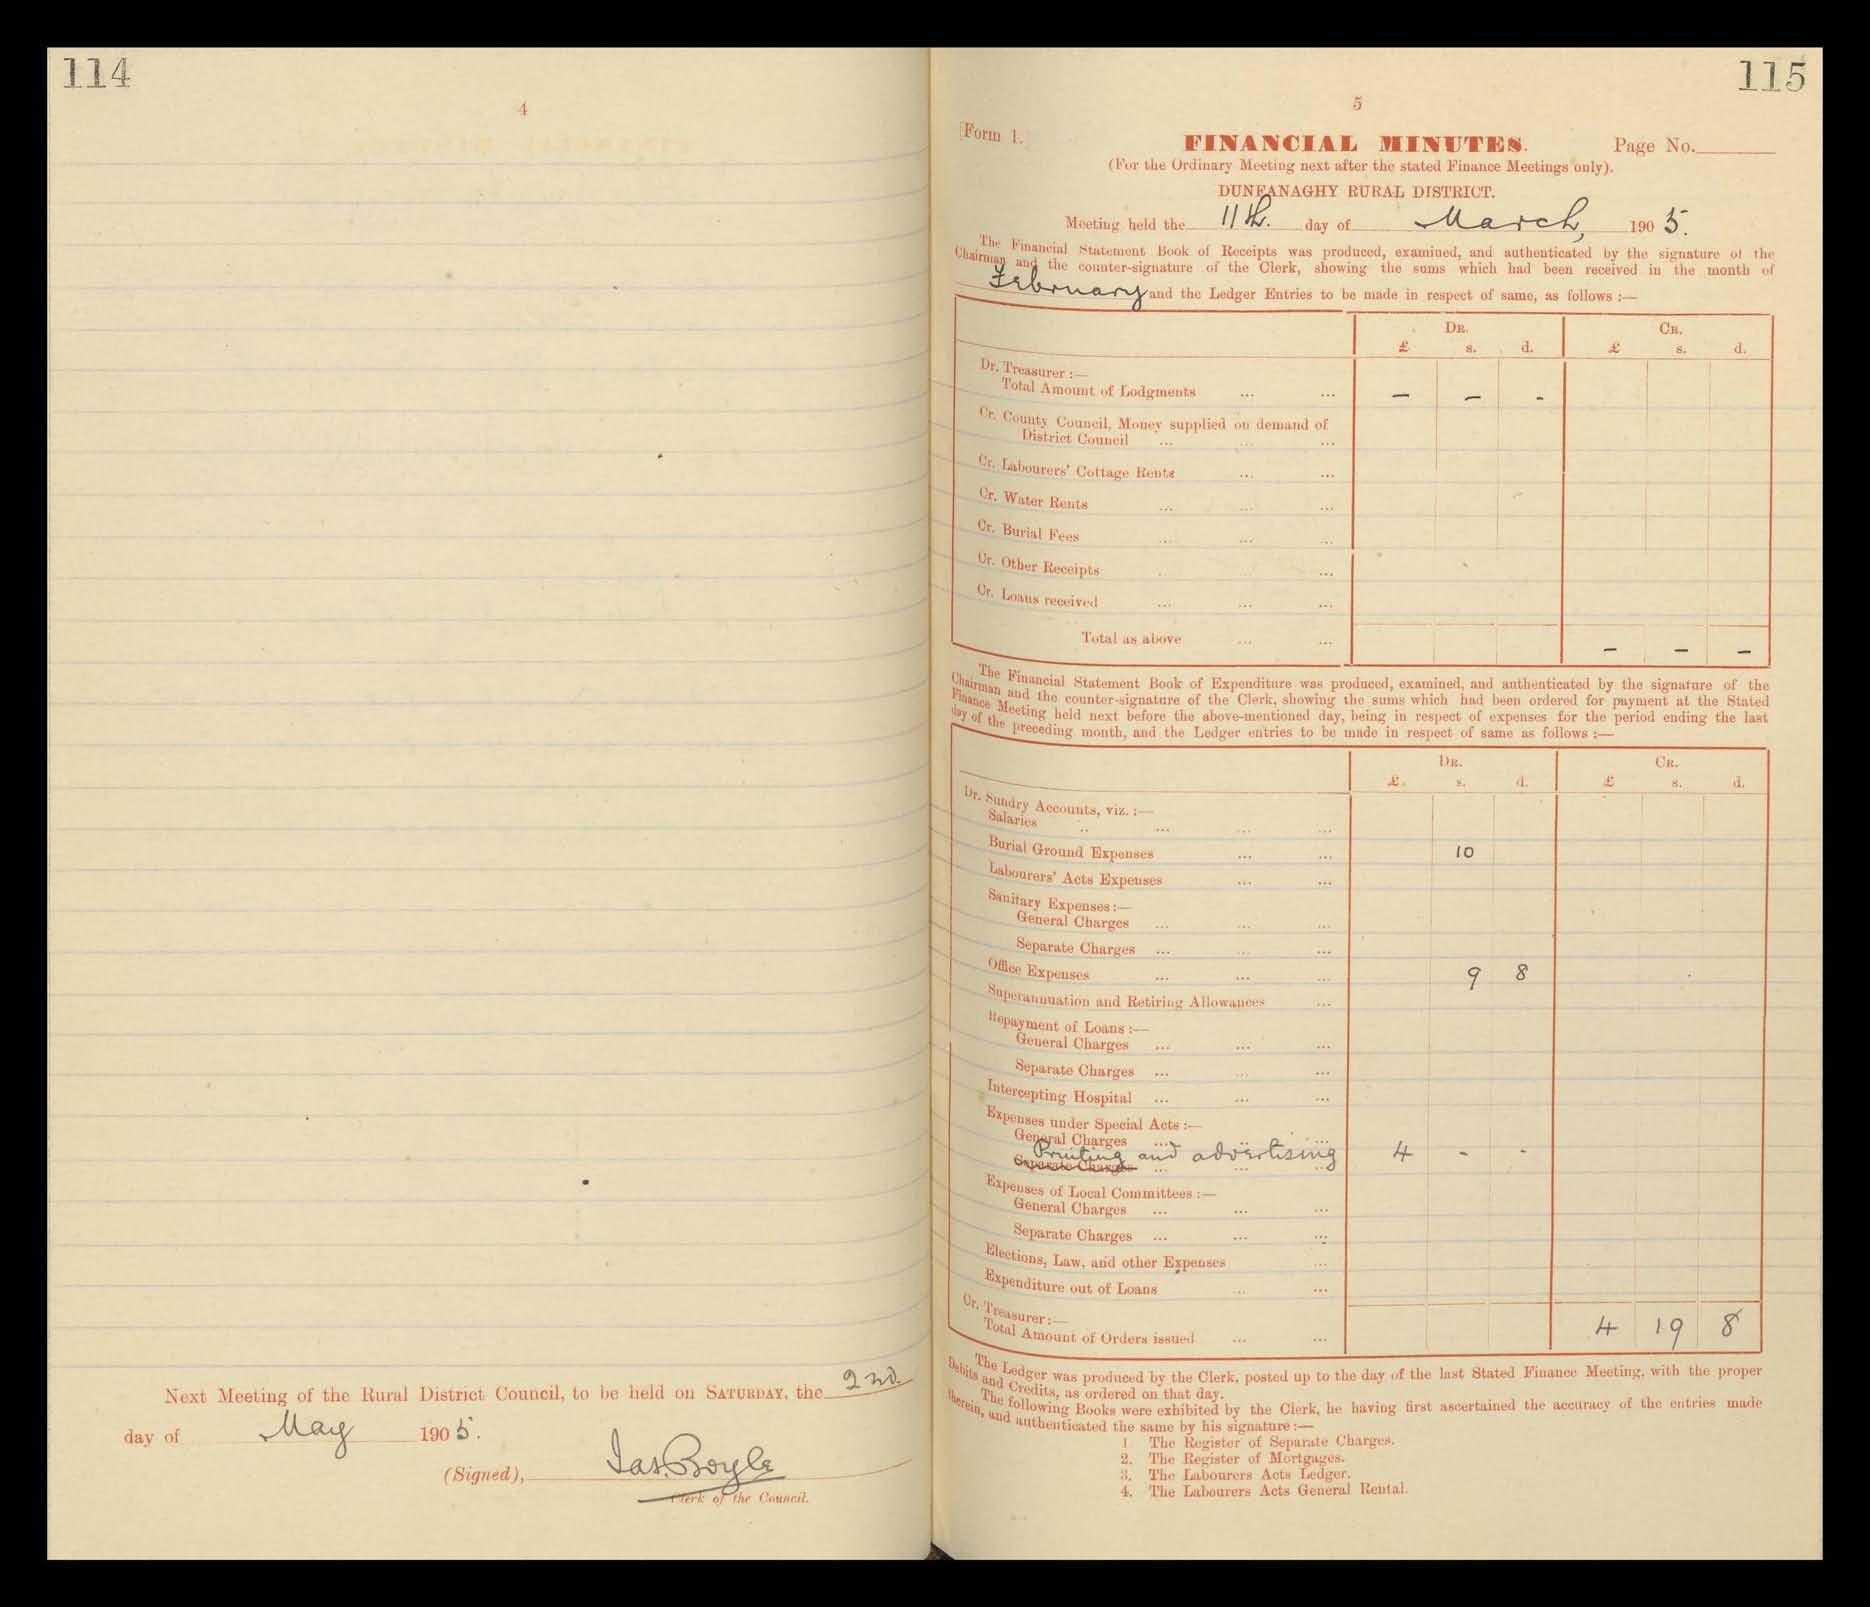 114
4
Next Meeting of the Rural District Council, to be held on SATURDAY, the 2nd.
day of May 1905.
(Signed), Jas. Boyle
Clerk of the Council.
115
5
[Form 1.]
FINANCIAL MINUTES.
Page No.
(For the Ordinary Meeting next after the stated Finance Meetings only).
DUNFANAGHY RURAL DISTRICT.
Meeting held the 11th. day of March, 1905.
The Financial Statement Book of Receipts was produced, examined, and authenticated by the signature of the
Chairman and the counter-signature of the Clerk, showing the sums which had been received in the month of
February and the Ledger Entries to be made in respect of same, as follows :—
DR. CR.
£ s. d. £ s. d.
Dr. Treasurer :—
Total Amount of Lodgments ... ... – – -
Cr. County Council, Money supplied on demand of
District Council ... ... ...
Cr. Labourers' Cottage Rents ... ...
Cr. Water Rents ... ... ...
Cr. Burial Fees ... ... ...
Cr. Other Receipts ... ... ...
Cr. Loans received ... ... ...
Total as above ... ... – – –
The Financial Statement Book of Expenditure was produced, examined, and authenticated by the signature of the
Chairman and the counter-signature of the Clerk, showing the sums which had been ordered for payment at the Stated
Finance Meeting held next before the above-mentioned day, being in respect of expenses for the period ending the last
day of the preceding month, and the Ledger entries to be made in respect of same as follows :—
DR. CR.
£. s. d. £ s. d.
Dr. Sundry Accounts, viz. :—
Salaries .. ... ... ...
Burial Ground Expenses ... ... 10
Labourers' Acts Expenses ... ...
Sanitary Expenses :—
General Charges ... ... ...
Separate Charges ... ... ...
Office Expenses ... ... ... 9 8
Superannuation and Retiring Allowances ...
Repayment of Loans :—
General Charges ... ... ...
Separate Charges ... ... ...
Intercepting Hospital ... ... ...
Expenses under Special Acts :—
General Charges ... .. ...
Printing and advertising 4 - -
Separate Charges ... ... ...
Expenses of Local Committees :—
General Charges ... ... ...
Separate Charges ... ... ...
Elections, Law, and other Expenses ...
Expenditure out of Loans ... ...
Cr. Treasurer :—
Total Amount of Orders issued ... ... 4 19 8
The Ledger was produced by the Clerk, posted up to the day of the last Stated Finance Meeting, with the proper
Debits and Credits, as ordered on that day.
The following Books were exhibited by the Clerk, he having first ascertained the accuracy of the entries made
therein, and authenticated the same by his signature :—
1 The Register of Separate Charges.
2. The Register of Mortgages.
3. The Labourers Acts Ledger.
4. The Labourers Acts General Rental.